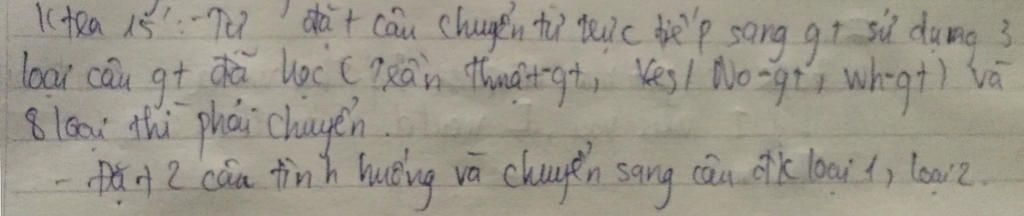 Ktra 15': - Tự đặt câu chuyển từ trực tiếp sang gt sử dụng 3
loại câu gt đã học (Trần thuật-gt, Yes/No-gt, wh-gt) và
8 loại thì phải chuyển.
- Đặt 2 câu tình huống và chuyển sang câu đk loại 1, loại 2.